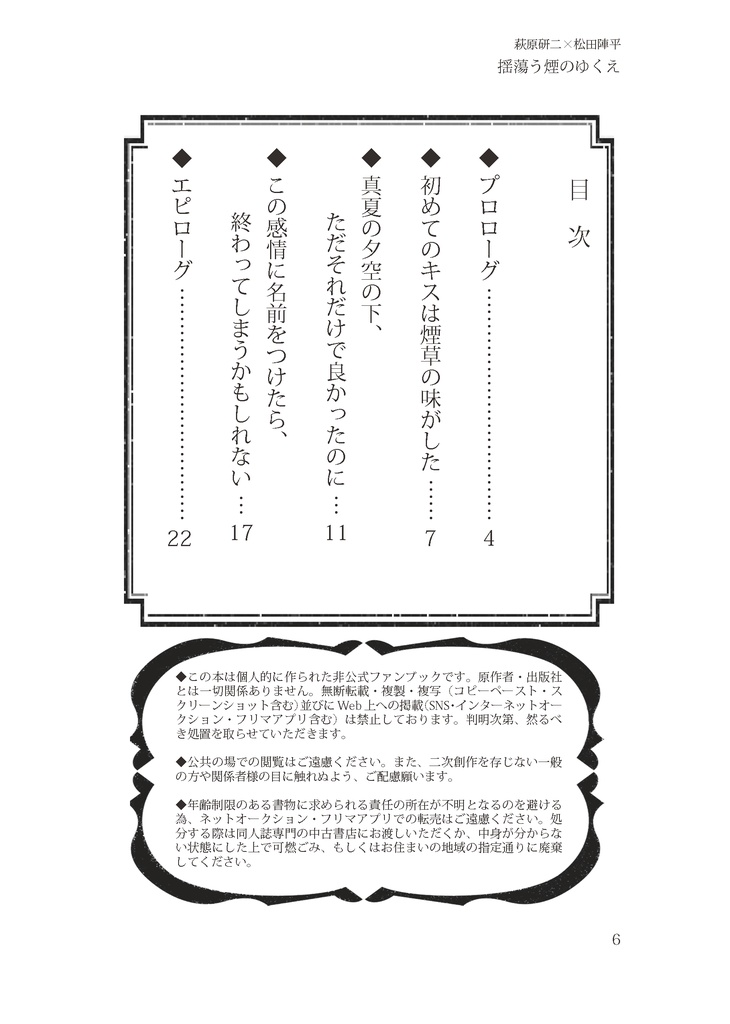 萩原研二×松田陣平
揺蕩う煙のゆくえ
目次
◆プロローグ……………………………4
◆初めてのキスは煙草の味がした……7
◆真夏の夕空の下、
ただそれだけで良かったのに…11
◆この感情に名前をつけたら、
終わってしまうかもしれない…17
◆エピローグ……………………………22
◆この本は個人的に作られた非公式ファンブックです。原作者・出版社
とは一切関係ありません。無断転載・複製・複写（コピーペースト・ス
クリーンショット含む）並びに Web 上への掲載（SNS・インターネットオー
クション・フリマアプリ含む）は禁止しております。判明次第、然るべ
き処置を取らせていただきます。
◆公共の場での閲覧はご遠慮ください。また、二次創作を存じない一般
の方や関係者様の目に触れぬよう、ご配慮願います。
◆年齢制限のある書物に求められる責任の所在が不明となるのを避ける
為、ネットオークション・フリマアプリでの転売はご遠慮ください。処
分する際は同人誌専門の中古書店にお渡しいただくか、中身が分からな
い状態にした上で可燃ごみ、もしくはお住まいの地域の指定通りに廃棄
してください。
6